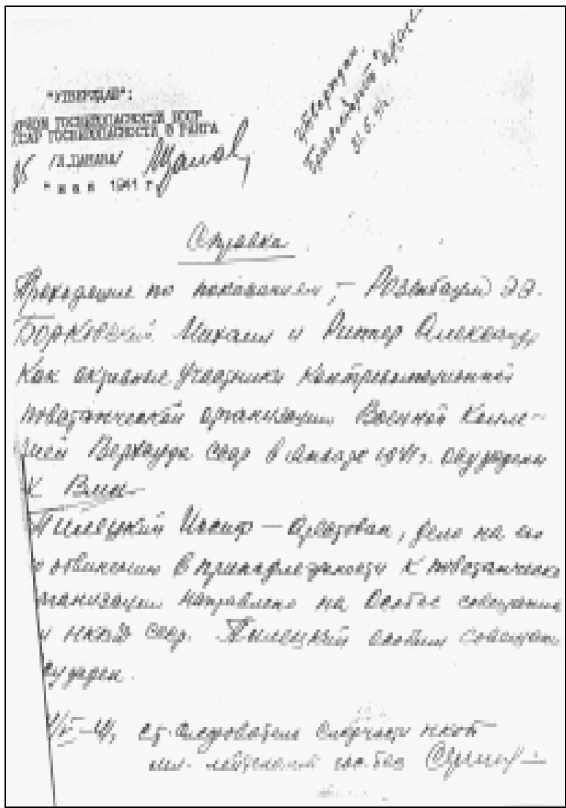 "УТВЕРЖДАЮ":
ГОСБЕЗОПАСНОСТИ
ГОСБЕЗОПАСНОСТИ 3 РАНГА
мая 1941 г.
31.5.41.
Справка
Проходящие по показаниям – Розенбаум ЭЭ.
Борковский Михаил и Риттер Александр
как активные участники контрреволюционной
повстанческой организации Военной Колле-
гией Верхсуда ссср в январе 1941 г. осуждены
к
Пилецкий Иосиф – арестован, дело на его
обвинению в принадлежности к повстанческо
организации направлено на Особое совещание
нквд ссср. Пилецкий особым совещан
осужден.
ст. следователь следчасти нкгб
мл. лейтенант гос. без